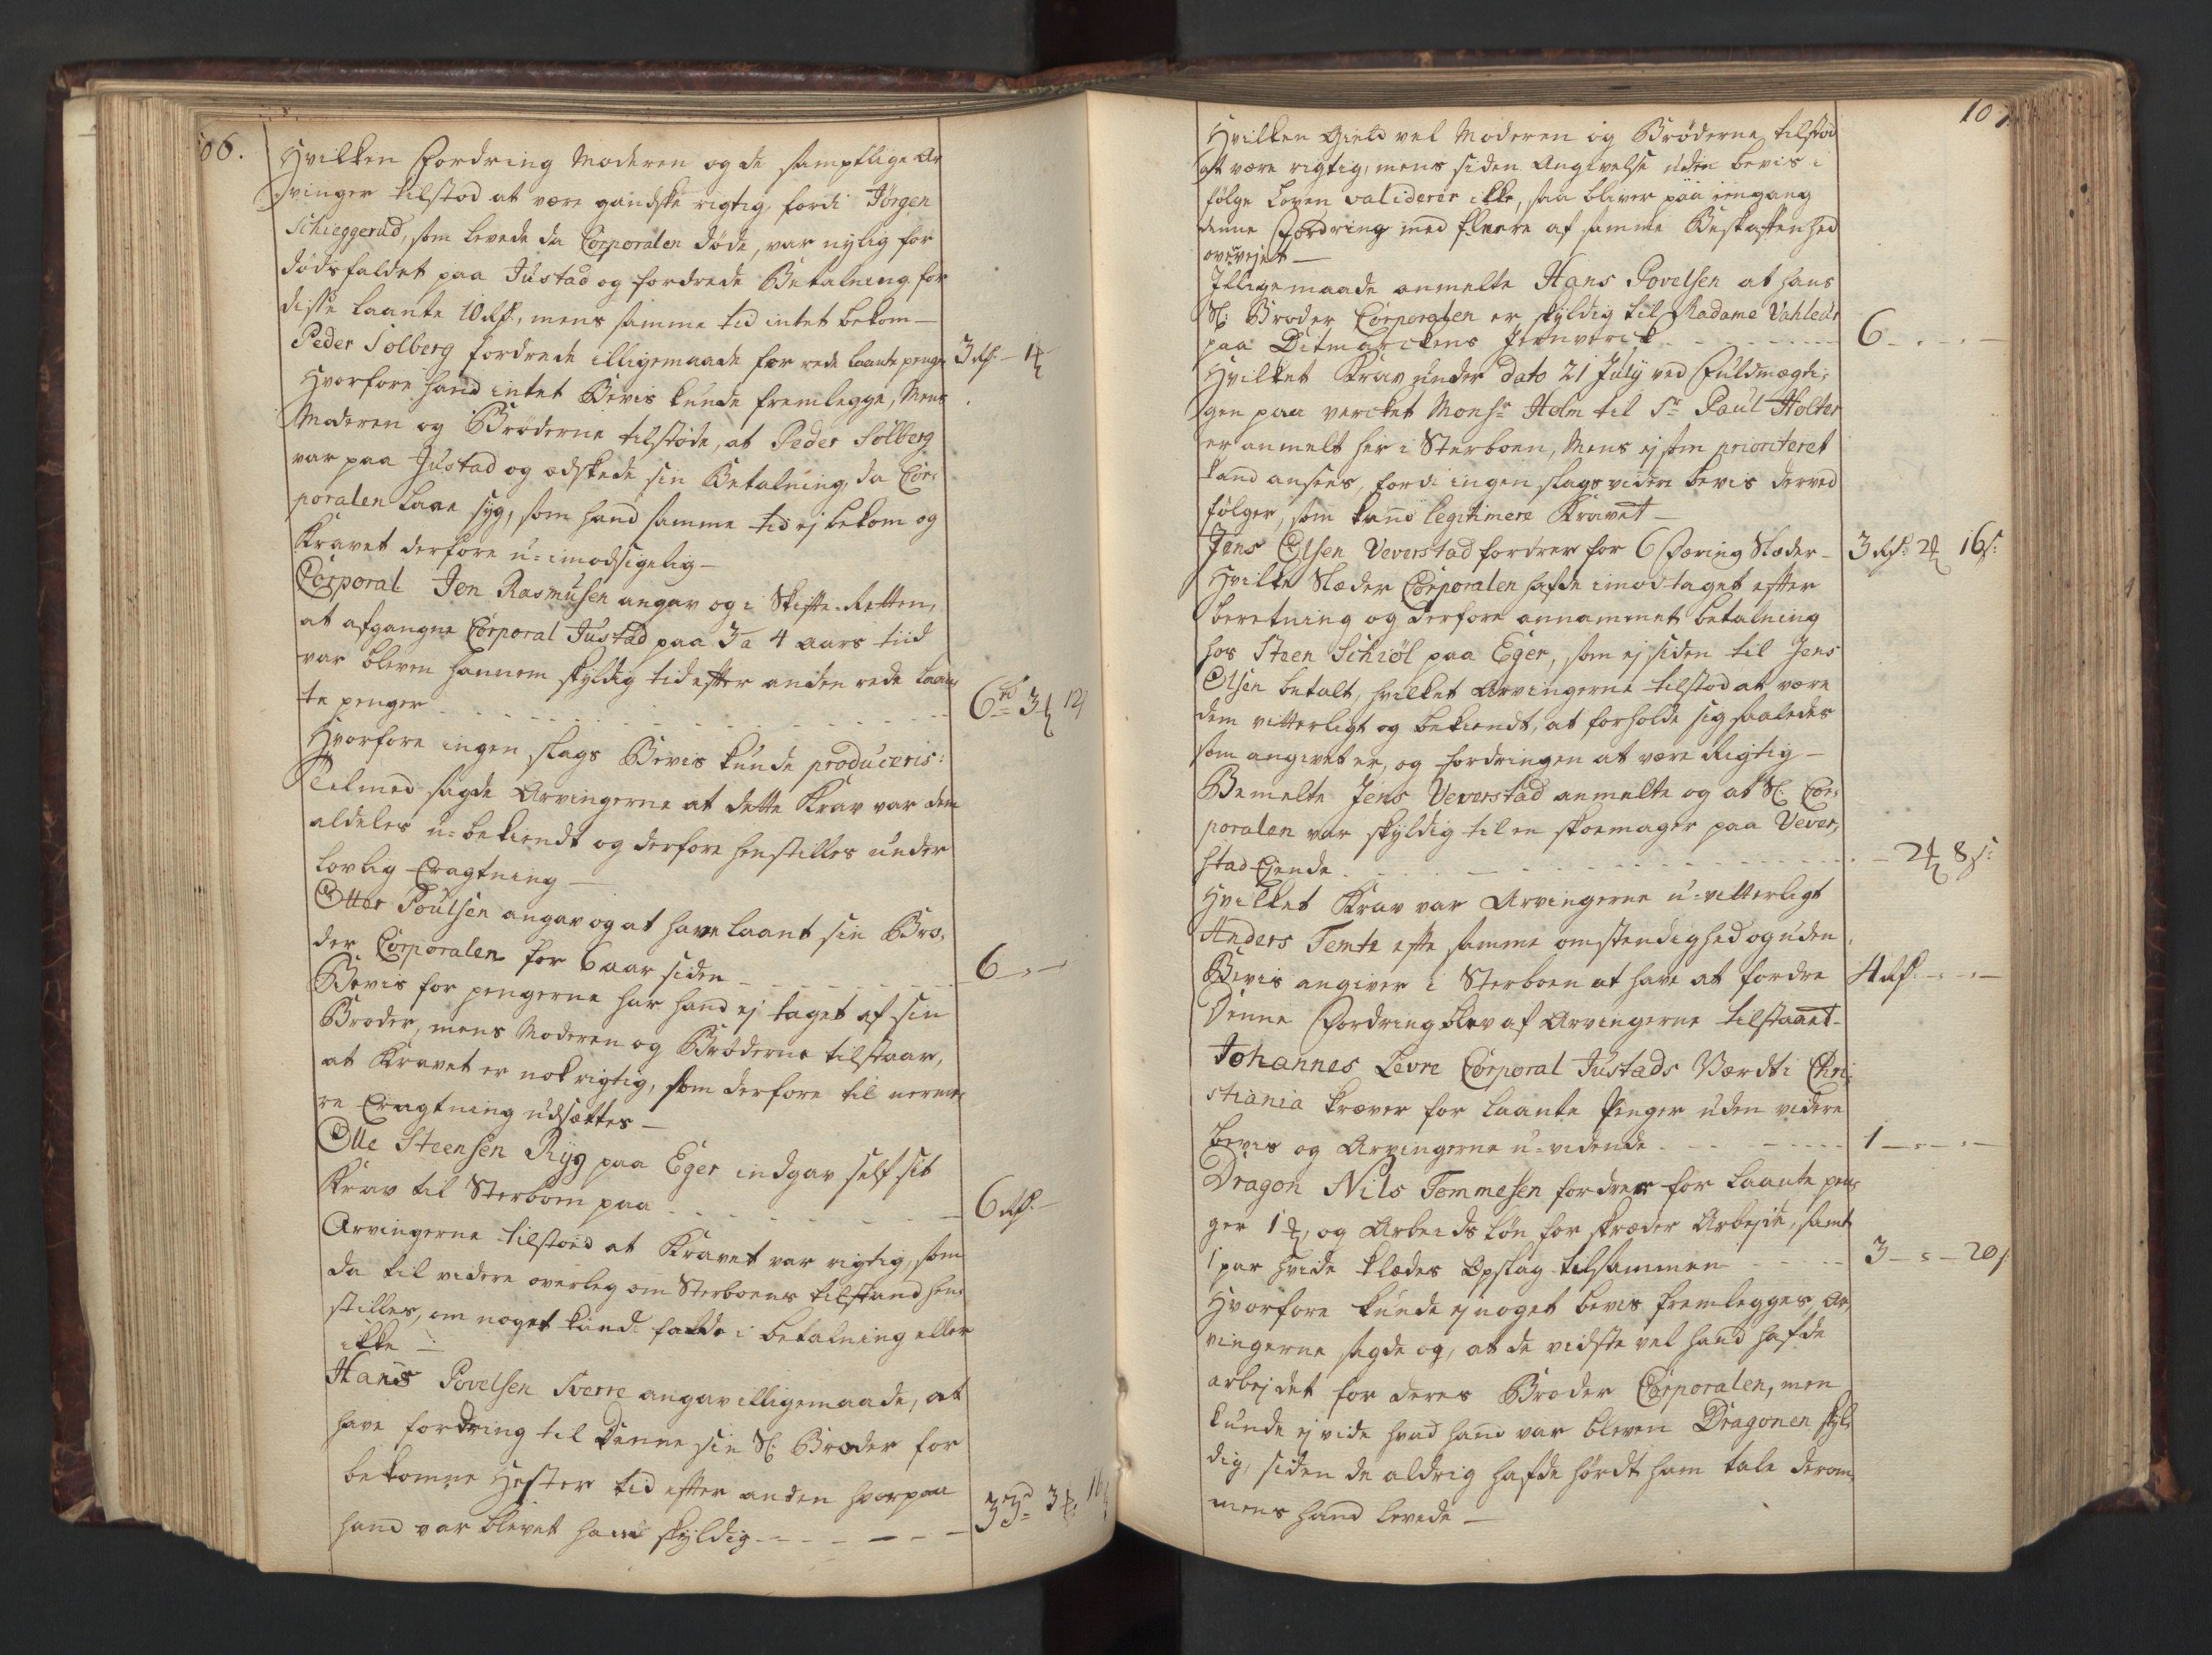 106.
Hvilken Fordring Moderen og de samptlige Ar
vinger tilstod at være gandske rigtig, fordi Jørgen
Schieggerud, som levede da Corporalen døde, var nylig før
dødsfaldet paa Justad og fordrede Betalning for
disse laante 10 Rd:, mens samme tid intet bekom —
Peder Solberg fordrede illigemaade for rede laante penge 3 Rd: - 1
Hvorfore hand intet Bevis kunde fremlegge, Mens
Moderen og Brøderne tilstode, at Peder Solberg
var paa Justad og ædskede sin Betalning, da Cor-
poralen laae syg, som hand samme tid ej bekom og
Kravet derfore u-imodsigelig —
Corporal Jon Rasmusen angav og i Skifte-Retten,
at afgangne Corporal Justad paa 3 a 4 aars tiid
var bleven hannem skyldig tid efter anden rede laan-
te penger - - - 6 Rd 3 12
Hvorfore ingen slags Bevis kunde produceris:
Tilmed sagde Arvingerne at dette Krav var dem
aldeles u-bekiendt og derfore henstilles under
lovlig Eragtning —
Otter Poulsen angav og at have laant sin Bro-
der Corporalen for 6 aar siden - - - 6 - -
Bevis for pengerne har hand ej taget af sin
Broder, mens Moderen og Brøderne tilstaar,
at Kravet er nok rigtig, som derfore til nerme-
re Eragtning udsættes —
Olle Steensen Ryg paa Eger indgav self sit
Krav til Sterboen paa - - - 6 Rd: -
Arvingerne tilstoed at Kravet var rigtig, som
da til videre overleg om Sterboens tilstand hen-
stilles, om noget kand falde i betalning eller
ikke —
Hans Povelsen Sverre angav illigemaade, at
have fordring til denne sin Sl: Broder for
bekomne Hester tid efter anden hvorpaa
hand var blevet ham skyldig - - - 33 Rd 3 16
107.
Hvilken Gield vel Moderen og Brøderne tilstod
at være rigtig, mens siden Angivelse uden bevis i
følge Loven validerer ikke, saa bliver paa eengang
denne Fordring med fleere af samme Beskaffenhed
overvejet —
Illigemaade anmelte Hans Povelsen at hans
Sl: Broder Corporalen er skyldig til Madame Vahleur
paa Ditmarckens Jernverck - - - 6 - - -
Hvilket Krav under dato 21 July ved Fuldmægti-
gen paa vercket Monsr Holm til Sr Paul Holter
er anmelt her i Sterboen, Mens ej som prioriteret
kand ansees, fordi ingen slags videre bevis derved
følger, som kand legitimere Kravet —
Jens Olsen Veverstad fordrer for 6 Færing Slæder - 3 Rd: 2 16 s:
Hvilke Slæder Corporalen hafde imodtaget efter
beretning og derfore annammet betalning
hos Steen Schiøl paa Eger, som ej siden til Jens
Olsen betalt, hvilket Arvingerne tilstod at være
dem vitterligt og bekiendt, at forholde sig saaledes
som angivet er, og fordringen at være Rigtig —
Bemelte Jens Veverstad anmelte og at Sl: Cor-
poralen var skyldig til en skomager paa Vever-
stad Ejende - - - 2 8 s:
Hvilket Krav var Arvingerne u-vitterligt
Anders Temte efter samme omstendighed og uden
Bevis angiver i Sterboen at have at fordre 4 Rd: - - -
Denne Fordring blev af Arvingerne tilstaaet -
Johannes Levre Corporal Justads Værdt i Chri-
stiania kræver for laante Penger uden videre
bevis og Arvingerne u-vidende - - - 1 - - -
Dragon Nils Tommesen fordrer for laante pen-
ger 1, og Arbeids løn for skræder Arbejde, samt
1 par hvide klædes Opslag tilsammen - - - 3 - - 20 s
Hvorfore kunde ej noget bevis fremlegges, Ar-
vingerne sagde og, at de vidste vel hand hafde
arbejdet for deres Broder Corporalen, men
kunde ej vide hvad hand var bleven Dragonen skyl-
dig, siden de aldrig hafde hørdt ham tale derom,
mens hand levede —